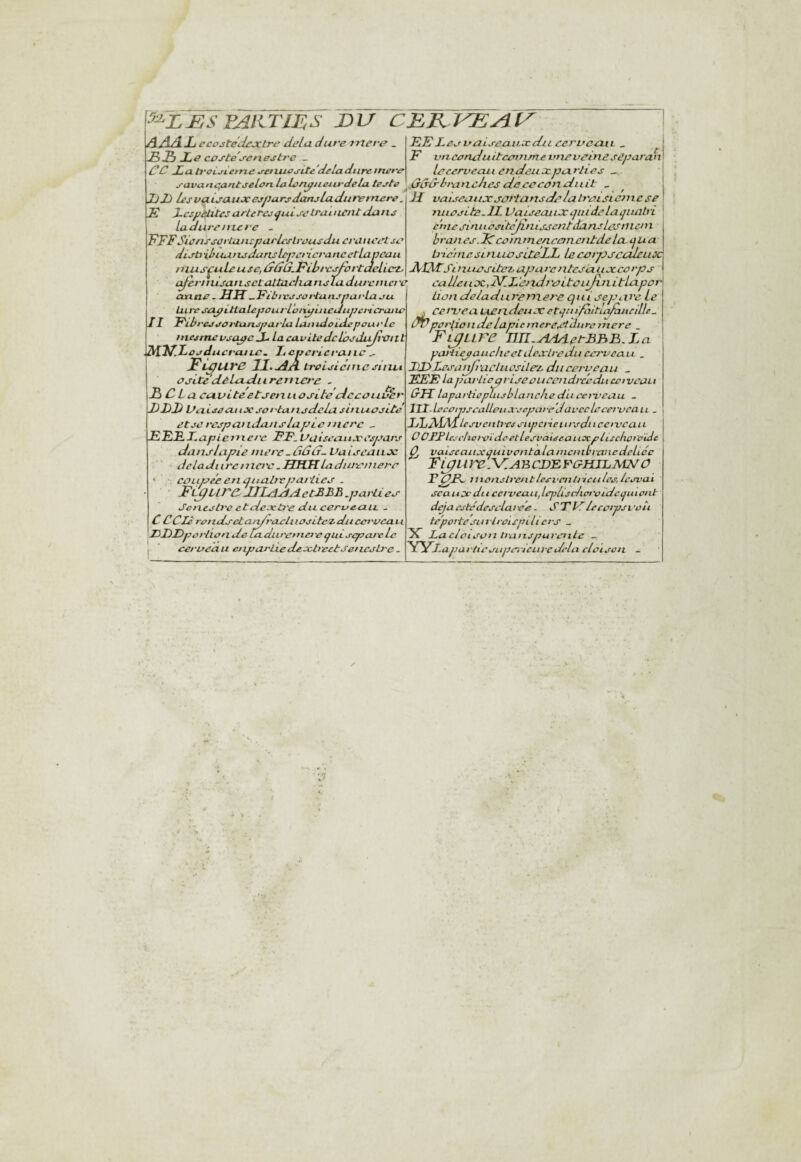 52 LES PARTIES DU CERVEAV
AAA Le coste dextre dela dure mere _
BB Le coste senestre _
CC La troisieme senuosite dela dure mere
savançant selon la longueur dela teste
DD les vaisaux espars dans la dure mere.
E Les petites arteres qui se trainent dans
la dure mere _
FFF Siens sortans par les trous du crane et se
distribuans dans le pericrane et la peau
musculeuse, GGG Fibres fort deliez,
afermisans et attachans la dure mere
crane _ HH _ Fibres sortans par la su
ture sagittale pour l'origine du pericrane
II Fibres sortans par la lambdoide pour le
mesme vsage L La cavite de l'os du front
MN Los du crane _ Le pericrane _
Figure II. AA troisieme sinu
osite de la dure mere _
B C La cavite et senuosite decouver
DDD Vaiseaux sortans de la sinuosite
et se respandans la pie mere _
EEE La pie mere FF. Vaiseaux espars
dans la pie mere _ GGG _ Vaiseaux
de la dure mere _ HHHH la dure mere
coupée en quatre parties _
Figure III AAA et BBB . parties
Senestre et dextre du cerveau _
C CC Les ronds et anfractuositez du cerveau
DDD portion de la dure mere qui separe le
cerveau en partie dextre et senestre _
EE Les vaiseaux du cerveau _
F vn conduit comme vne veine separan
le cerveau en deux parties _
GGG branches de ce conduit _
H vaiseaux sortans de la troisieme se
nuosite _ II. Vaiseaux qui de la quatri
eme sinuosite finissent dans les mem
branes. K commencement de la qua
trieme sinuosite LL le corps caleux
MM Sinuositez aparentes aux corps
calleux, N. L'endroit ou finit la por
tion de la dure mere qui separe le
cerveau en deux et qui fait la faucille _
OO portion de la pie mere, et dure mere _
Figure IIII. AAA et BBB. La
partie gauche et dextre du cerveau _
DD Les anfractuositez du cerveau _
EEE la partie grise ou cendrée du cerveau
GH la partie plus blanche du cerveau _
III. le corps calleux separé d'avec le cerveau _
LLMM les ventres superieurs du cerveau
OOPP les choroide et les vaiseaux plis choroide
Q vaiseaux qui vont a la membrane deliée
Figure .V. ABCDEFGHILMNO
PQR. monstrent les ventricules, les vai
seaux du cerveau, le plis choroide qui ont
deja esté desclarée . STV le corps vou
té porté sur trois piliers _
X La cloison transparente _
YY La partie superieure de la cloison _